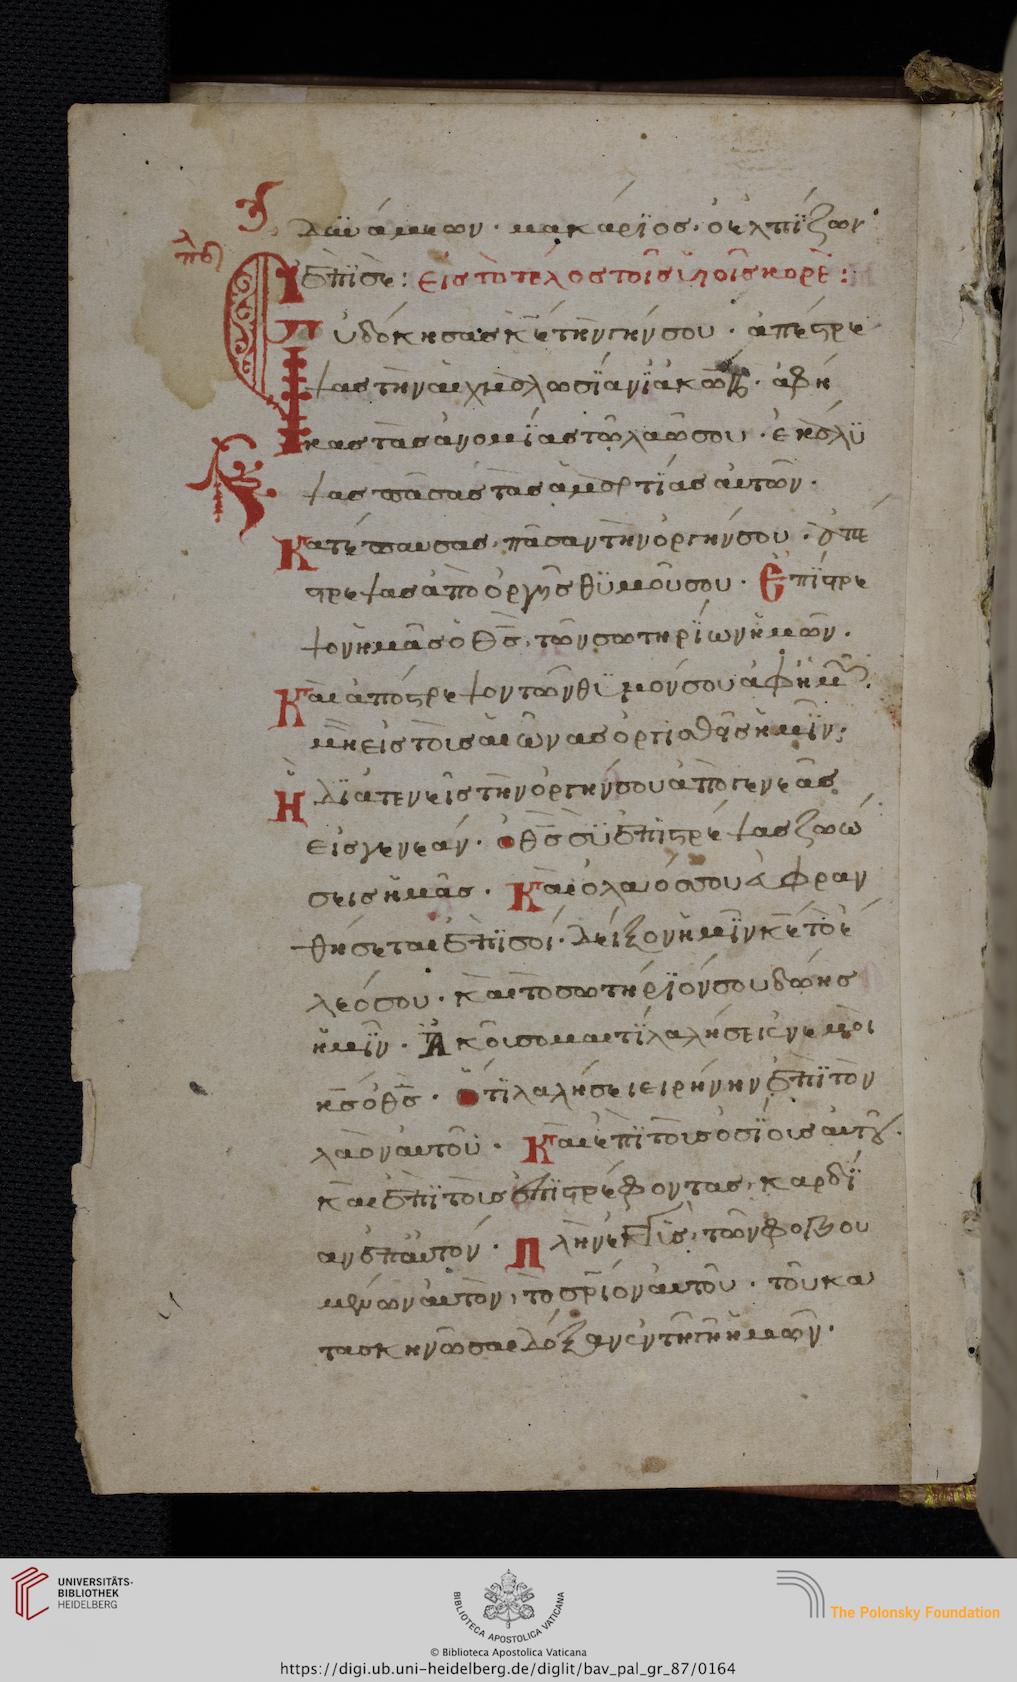 λαϊ ἀμεων · μακάρϊος · ὁ ἐλπΐζων
ἐπϊ σε : εἰς τὸ τέλος τοῖς ὑιοῖς κορὲ :
πδ
υδόκησας κ̅ε τὴν γήν σου · ἀπέστρε
ψας τὴν αἰχμαλωσΐαν ϊακώβ · ἀφῆ
κας τὰς ἀνομΐας τῶ λαῶ σου · ἐκάλϋ
ψας πᾶσας τὰς ἁμαρτΐας αὐτῶν ·
Κατέπαυσας, πᾶσαν τὴν ὀργήν σου · ἀπέ
στρεψας ἀπο ὀργῆς θϋμοῦ σου · Ἐπΐστρε
ψον ἡμᾶς ὁ θ̅ς̅, τῶν σωτηρΐων ἡμῶν ·
Καὶ ἀπόστρεψον τῶν θϋμόν σου ἀφ ἡμῶν ·
μὴ εἰς τοὶς αἰῶνας ὀργισθῆς ἡμῖν ;
Ἢ δϊατενεῖς τὴν ὀργήν σου ἀπὸ γενεᾶς
εἰς γενεάν · ὁ θ̅ς̅ σϋ ἐπϊστρεψας ζωώ
σεις ἡμᾶς · Καὶ ὁ λαιός σου εὐφραν
θήσεται ἐπϊ σοί · δεῖξον ἡμῖν κ̅ε τὸ ἐ
λεός σου · καὶ το σωτήρϊόν σου δώης
ἡμῖν · Ἀκοῖσομαι τϊ λαλήσει ἐν εμοὶ
κ̅ς̅ ὁ θ̅ς̅ · Ὅτϊ λαλήσει ειρήνην ἐπϊ τὸν
λαὸν αυτοῦ · Καὶ ἐπϊ τοὶς ὁσΐοις αὐτοῦ ·
καὶ ἐπϊ τοὶς ἐπϊστρέφοντας, καρδΐ
αν ἐπ αὐτόν · Πλὴν ἐγγϊς, τῶν φοβου
μένων αυτὸν, τὸ σ̅ρ̅ΐον αυτοῦ · τοῦ κα
τασκηνῶσαι δόξαν ἐν τῆ γῆ ἡμῶν ·
UNIVERSITÄTS-
BIBLIOTHEK
HEIDELBERG
BIBLIOTECA APOSTOLICA VATICANA
© Biblioteca Apostolica Vaticana
The Polonsky Foundation
https://digi.ub.uni-heidelberg.de/diglit/bav_pal_gr_87/0164